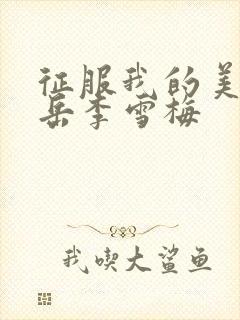 征服我的美
岳李雪梅
我喫大鲨鱼